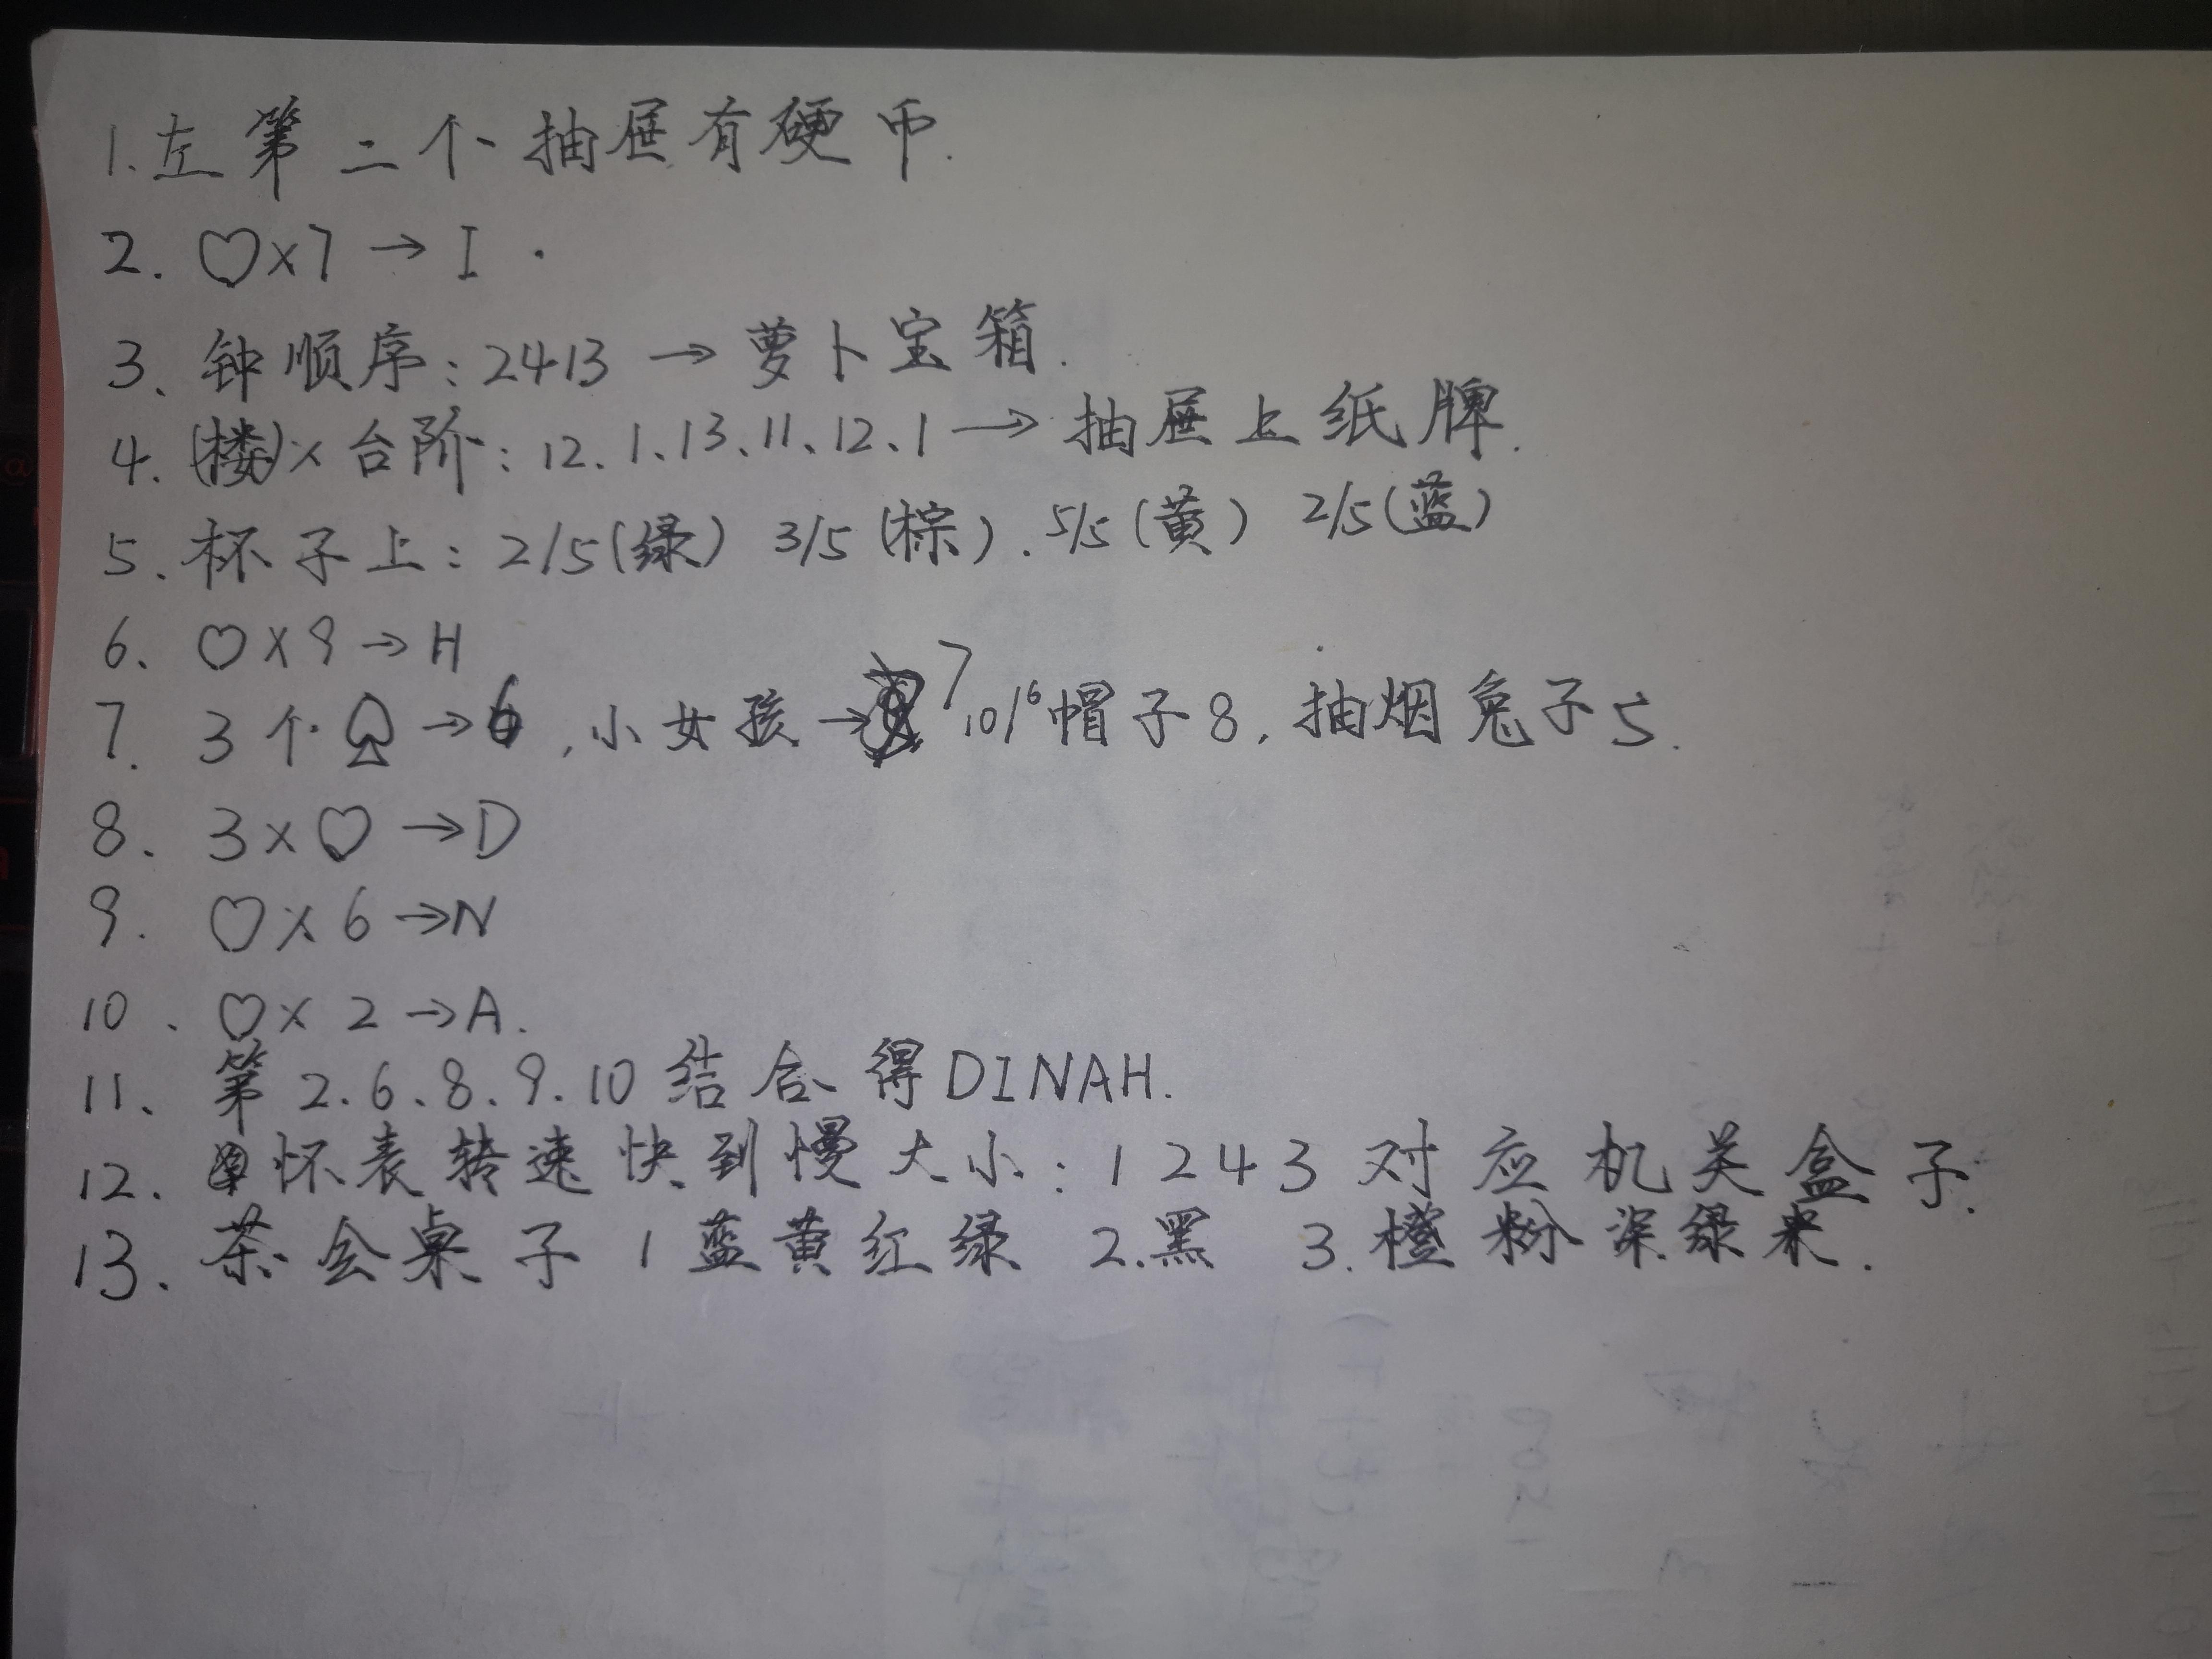 1.左第二个抽屉有硬币.
2. ♡×7→I.
3、钟顺序:2413→萝卜宝箱.
4.(楼)×台阶:12、1、13、11、12、1→抽屉上纸牌.
5、杯子上:2/5(绿) 3/5(棕).5/5(黄) 2/5(蓝)
6、♡×9→H
7. 3个♤→6,小女孩→7 10/6帽子8,抽烟兔子5.
8、3×♡→D
9. ♡×6→N
10、♡×2→A.
11、第2、6、8、9、10结合得DINAH.
12、怀表转速快到慢大小:1243对应机关盒子.
13、茶会桌子 1蓝黄红绿 2.黑 3.橙粉深绿米.